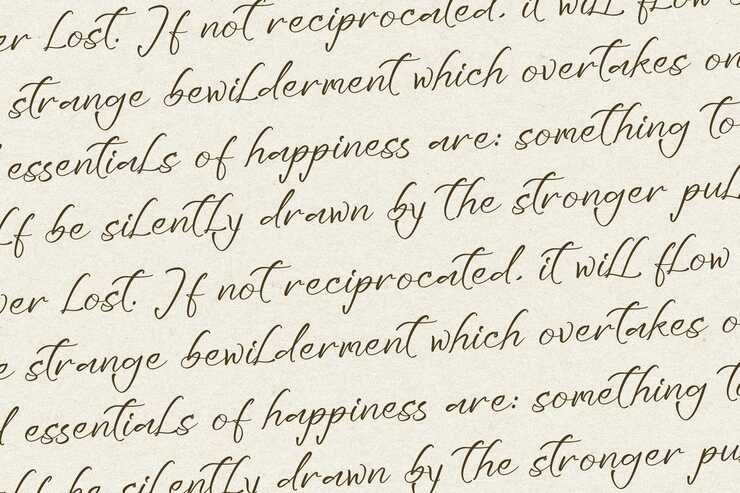 er lost. If not reciprocated, it will flow
strange bewilderment which overtakes on
essentials of happiness are: something to
lf be silently drawn by the stronger pul
ver lost. If not reciprocated, it will flow
e strange bewilderment which overtakes o
l essentials of happiness are: something t
be silently drawn by the stronger pu